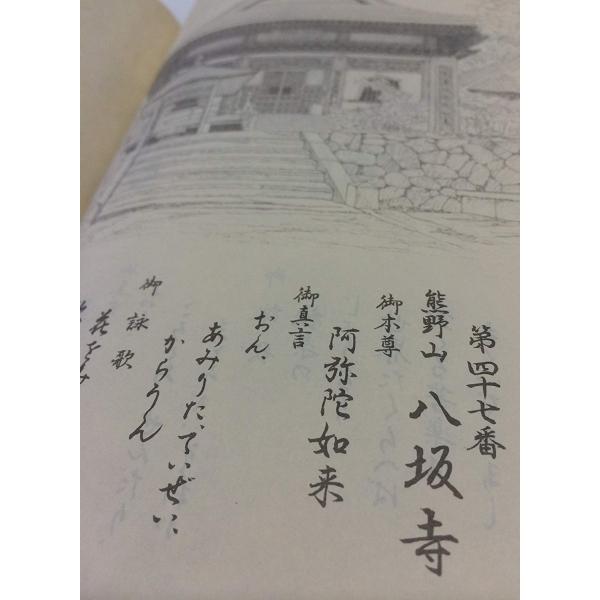 第四十七番
熊野山 八坂寺
御本尊
阿弥陀如来
御真言
おん、
あみりた、ていぜい、
からうん
御詠歌
花を